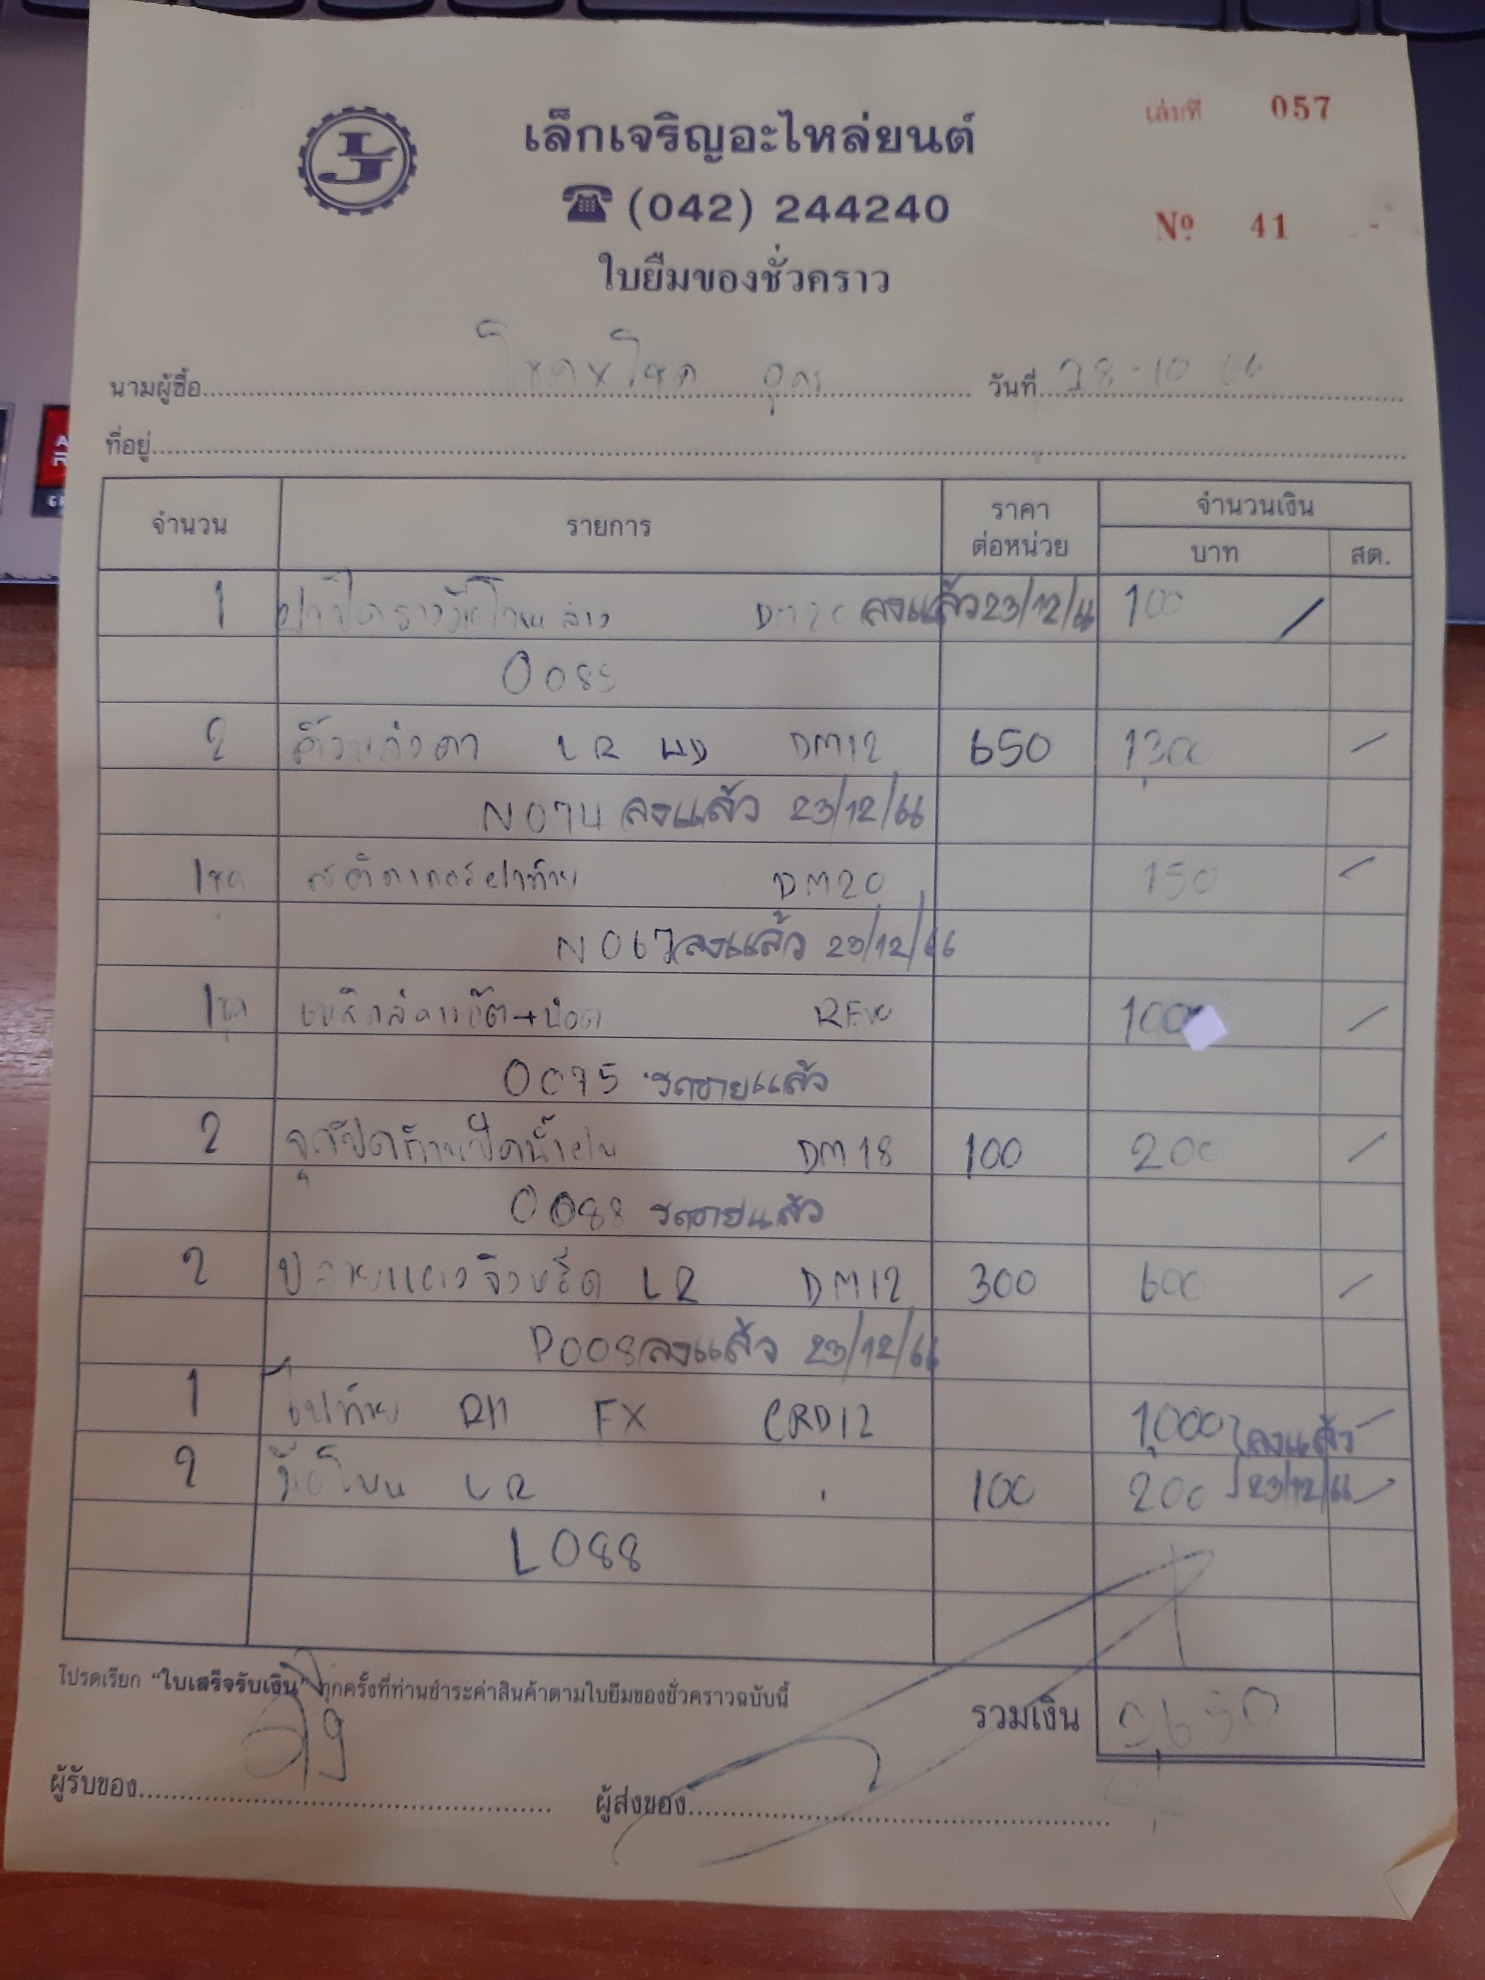 เล่มที่ 057
เล็กเจริญอะไหล่ยนต์
(042) 244240
Nº 41
ใบยืมของชั่วคราว
นามผู้ซื้อ อุดร วันที่ 28-10-66
ที่อยู่
จำนวน รายการ ราคาต่อหน่วย จำนวนเงิน
บาท สต.
1 DM20 ลงแล้ว 23/12/66 100
2 LR DM12 650 1,300
N074 ลงแล้ว 23/12/66
1ชุด สติกเกอร์ฝาท้าย DM20 150
N067 ลงแล้ว 23/12/66
1ชุด REVO 100
0075 รถขายแล้ว
2 DM18 100 200
0088 รถขายแล้ว
2 LR DM12 300 600
P008 ลงแล้ว 23/12/66
1 RH FX CRD12 1,000 ลงแล้ว
2 LR 100 200 23/12/66
L088
โปรดเรียก "ใบเสร็จรับเงิน" ทุกครั้งที่ท่านชำระค่าสินค้าตามใบยืมของชั่วคราวฉบับนี้
รวมเงิน 3,650
ผู้รับของ ผู้ส่งของ